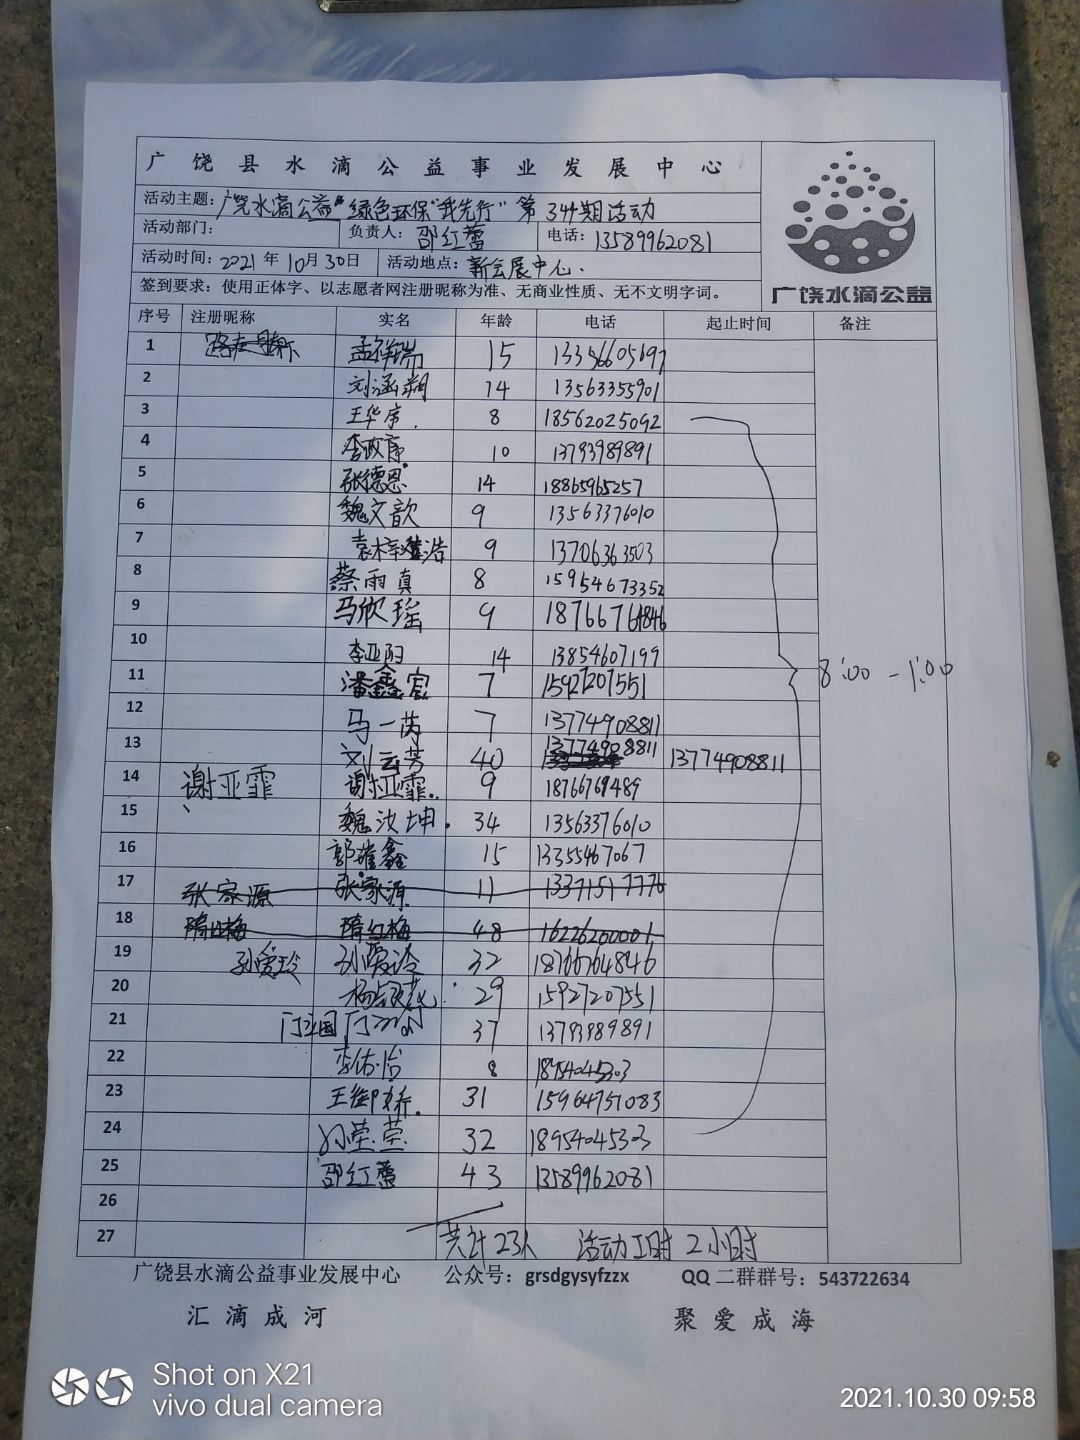 广饶县水滴公益事业发展中心
活动主题: 广饶水滴公益"绿色环保"我先行"第344期活动
活动部门: 负责人: 邵红蕾 电话: 13589962081
活动时间: 2021年10月30日 活动地点: 新会展中心.
签到要求: 使用正体字、以志愿者网注册昵称为准、无商业性质、无不文明字词。
广饶水滴公益
序号 注册昵称 实名 年龄 电话 起止时间 备注
1 孟祥瑞 15 13356605697
2 刘涵翔 14 13563355901
3 王华 8 18562025092
4 李政 10 13793989891
5 张德恩 14 18865965257
6 魏文歆 9 13563376010
7 袁梓 浩 9 13706363503
8 蔡雨真 8 15954673352
9 马欣瑶 9 18766764846
10 李亚 14 13854607199
11 潘鑫宸 7 15927207551
8:00-1:00
12 马一芮 7 13774908811
13 刘云芳 40 13774908811 13774908811
14 谢亚霏 谢亚霏 9 18766769489
15 魏汝坤 34 13563376010
16 郭 鑫 15 13355467067
17 张家源 张家源 11 13371517776
18 隋红梅 隋红梅 48 16226200001
19 孙爱玲 孙爱玲 32 18766764846
20 杨 花 29 15927207551
21 门卫国 37 13793989891
22 李依怡 8 18954045303
23 王御娇 31 15964751083
24 孙莹莹 32 18954045303
25 邵红蕾 43 13589962081
26
27 共计23人 活动工时2小时
广饶县水滴公益事业发展中心 公众号: grsdgysyfzzx QQ二群群号: 543722634
汇滴成河 聚爱成海
Shot on X21
vivo dual camera
2021.10.30 09:58